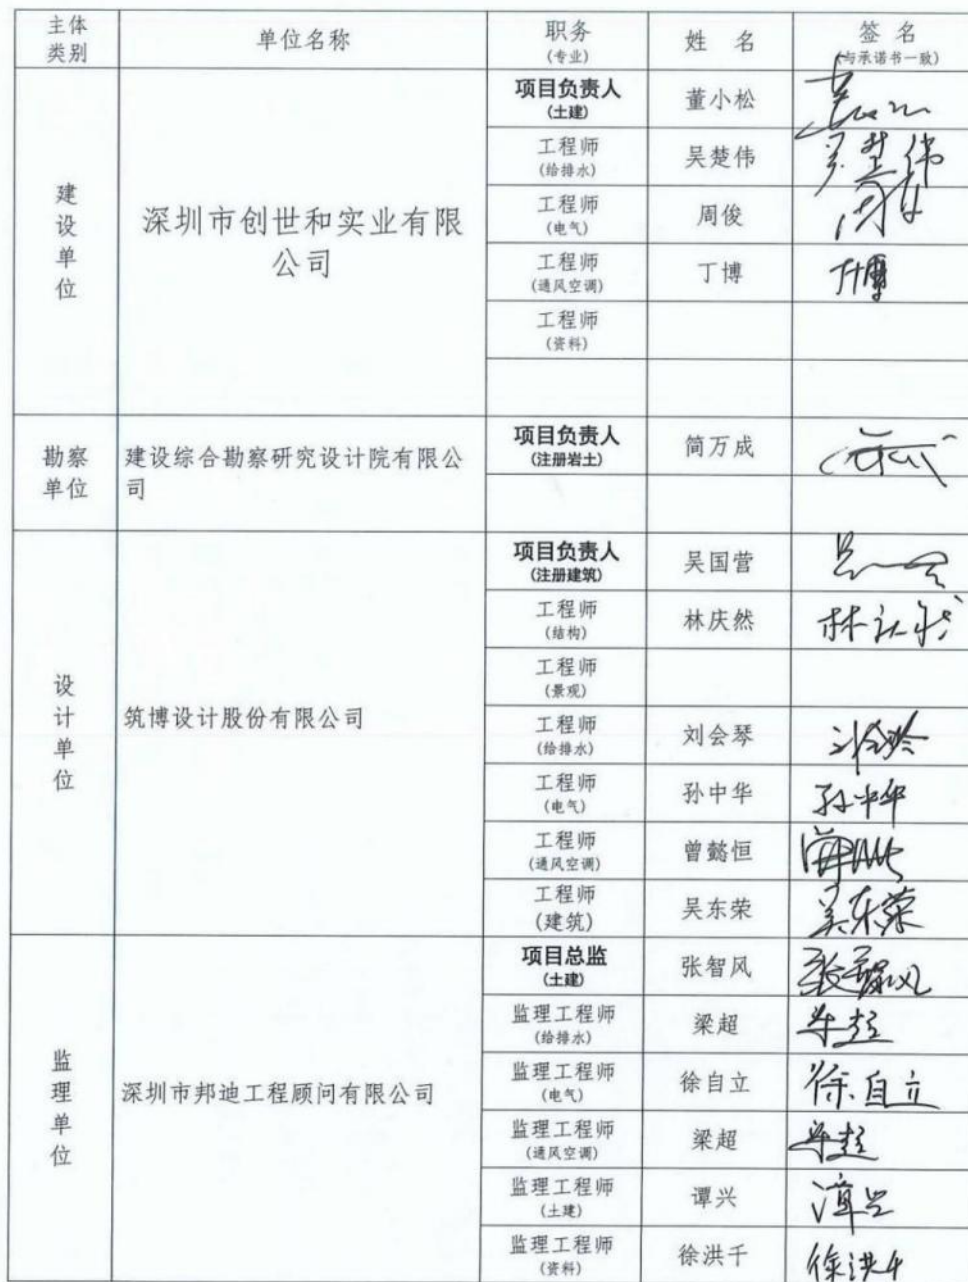 主体
类别
单位名称
职务
(专业)
姓 名
签 名
(与承诺书一致)
建
设
单
位
深圳市创世和实业有限
公司
项目负责人
(土建)
董小松
工程师
(给排水)
吴楚伟
吴楚伟
工程师
(电气)
周俊
周俊
工程师
(通风空调)
丁博
丁博
工程师
(资料)
勘察
单位
建设综合勘察研究设计院有限公
司
项目负责人
(注册岩土)
简万成
设
计
单
位
筑博设计股份有限公司
项目负责人
(注册建筑)
吴国营
工程师
(结构)
林庆然
工程师
(景观)
工程师
(给排水)
刘会琴
刘会琴
工程师
(电气)
孙中华
孙中华
工程师
(通风空调)
曾懿恒
工程师
(建筑)
吴东荣
吴东荣
监
理
单
位
深圳市邦迪工程顾问有限公司
项目总监
(土建)
张智风
张智风
监理工程师
(给排水)
梁超
梁超
监理工程师
(电气)
徐自立
徐自立
监理工程师
(通风空调)
梁超
梁超
监理工程师
(土建)
谭兴
谭兴
监理工程师
(资料)
徐洪千
徐洪千